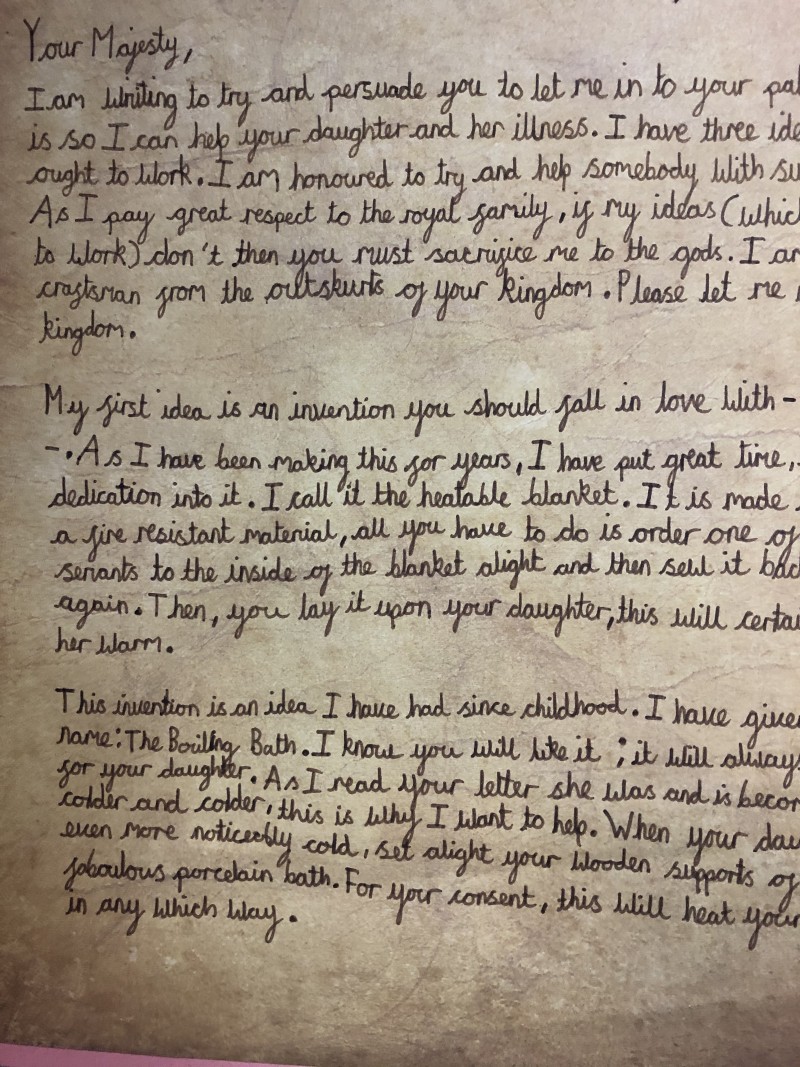 Your Majesty,
I am writing to try and persuade you to let me in to your pal
is so I can help your daughter and her illness. I have three ide
ought to work. I am honoured to try and help somebody with su
As I pay great respect to the royal family, if my ideas (whic
to work) don't then you must sacrifice me to the gods. I am
craftsman from the outskurts of your kingdom. Please let me
kingdom.
My first idea is an invention you should fall in love with -
-. As I have been making this for years, I have put great time,
dedication into it. I call it the heatable blanket. It is made
a fire resistant material, all you have to do is order one of
servants to the inside of the blanket alight and then sew it bac
again. Then, you lay it upon your daughter, this will certai
her warm.
This invention is an idea I have had since childhood. I have given
name: The Boiling Bath. I know you will like it ; it will always
for your daughter. As I read your letter she was and is becom
colder and colder, this is why I want to help. When your dau
even more noticeably cold, set alight your wooden supports of
faboulous porcelain bath. For your consent, this will heat your
in any which way.